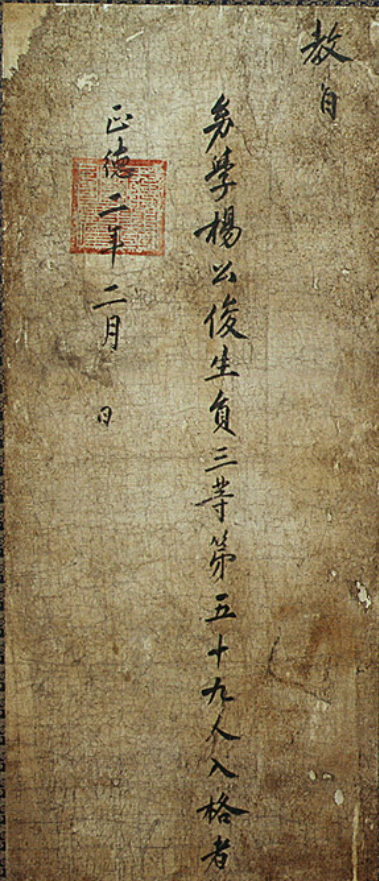 教旨
幼學楊公俊生員三等第五十九人入格者
正德二年二月 日